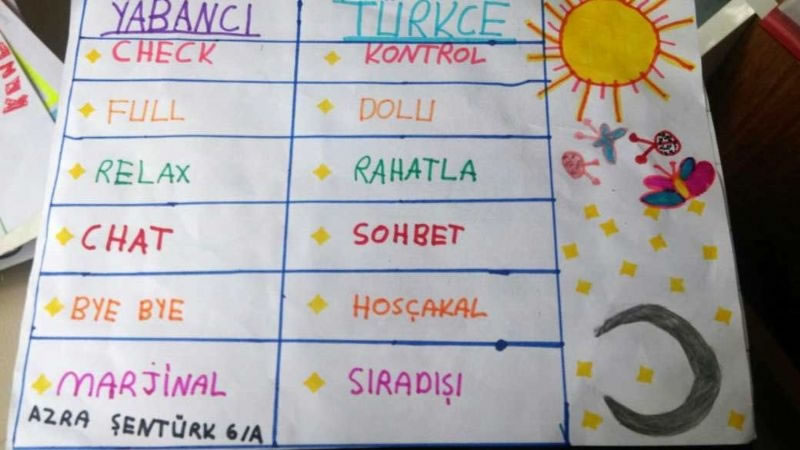 YABANCI TÜRKCE
CHECK KONTROL
FULL DOLU
RELAX RAHATLA
CHAT SOHBET
BYE BYE HOSÇAKAL
MARJİNAL SIRADIŞI
AZRA ŞENTÜRK 6/A